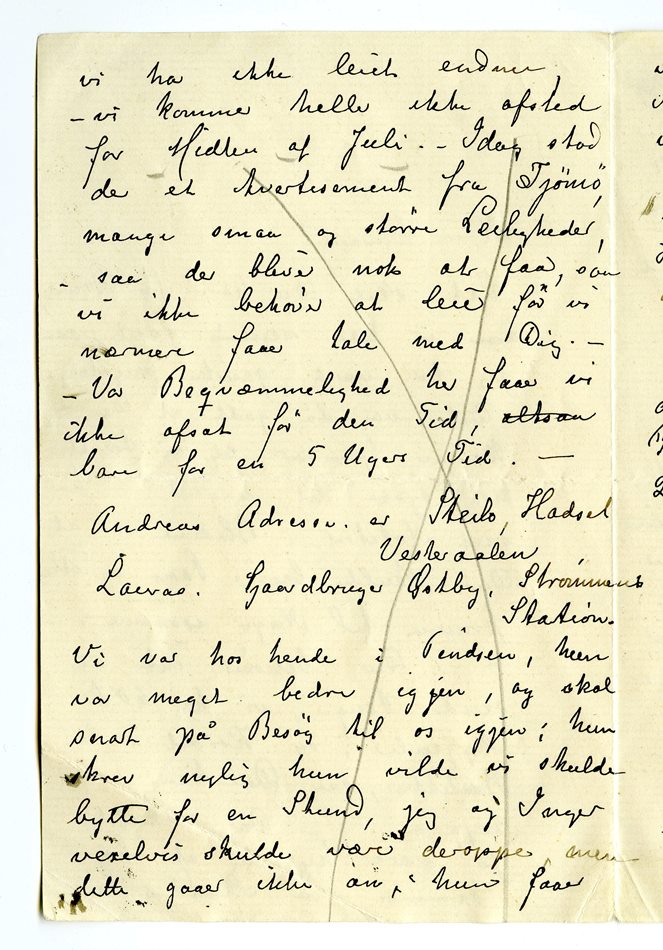 vi har ikke leiet endnu,
– vi kommer heller ikke afsted
før Midten af Juli. – Idag stod
der et Avertisement fra Tjömö,
mange smaa og större Leiligheder,
– saa der bliver nok at faa, saa
vi ikke behöver at leie för vi
nærmere faaer tale med Dig. –
– Vor Beqvæmmelighed her faaer vi
ikke afsat för den Tid, altsaa
bare for en 5 Ugers Tid. –
Andreas Adresse. er Steilo, Hadsel
Vesteraalen
Lauras. Gaardbruger Østby, Strømmens
Station.
Vi var hos hende i Pindsen, hun
var meget bedre igjen, og skal
snart på Besög til os igjen; hun
skrev nylig hun vilde vi skulde
bytte for en Stund, jeg og Inger
vexelvis skulde være deroppe, men
dette gaaer ikke an, hun faaer